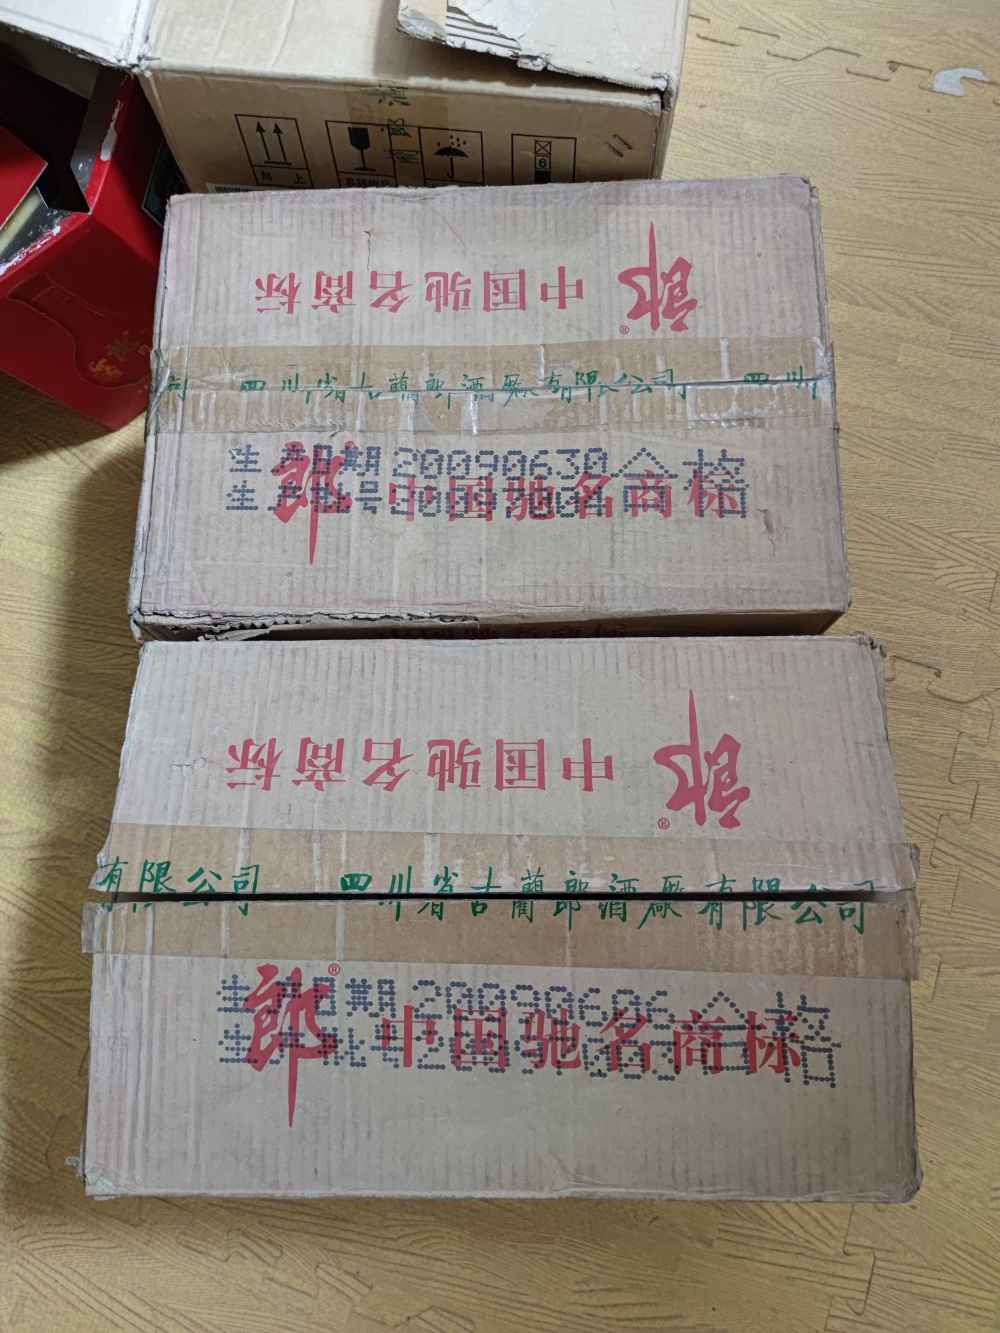 郎酒
向上
6
郎®
中国驰名商标
司 四川省古蔺郎酒厂有限公司 四川
生产日期20090630合格
郎 中国驰名商标
郎®
中国驰名商标
有限公司 四川省古蔺郎酒厂有限公司
生产日期20090606合格
郎® 中国驰名商标